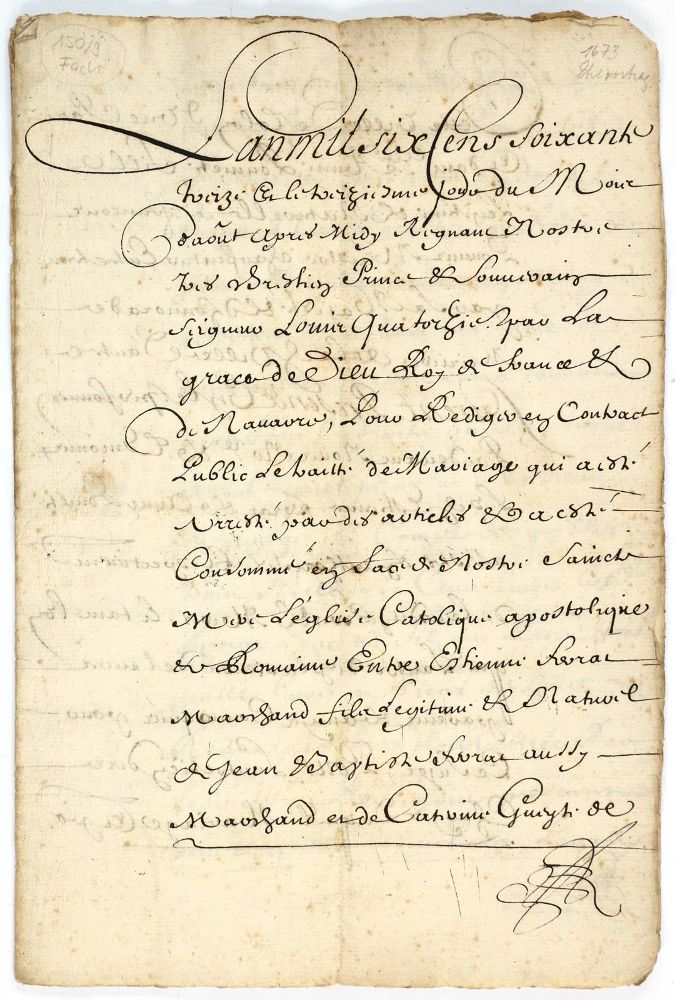 150/9
1673
Lan mil six Cens Soixante
treize Et le treiziesme jour du Mois
daoust apres Midy Regnant Nostre
tres Chrestien Prince & Souverain
seigneur Louis Quatorzies. par La
grace de Dieu Roy de france &
de Navarre, Pour Rediger en Contract
Public Le traitté de Mariage qui a esté
Arresté par des articles & a esté
Consommé en face de Nostre Saincte
Mere L'églize Catolique apostolique
& Romaine Entre Estienne
Marchand fils Legitime & Naturel
de Jean Baptiste aussy
Marchand et de Catrine de